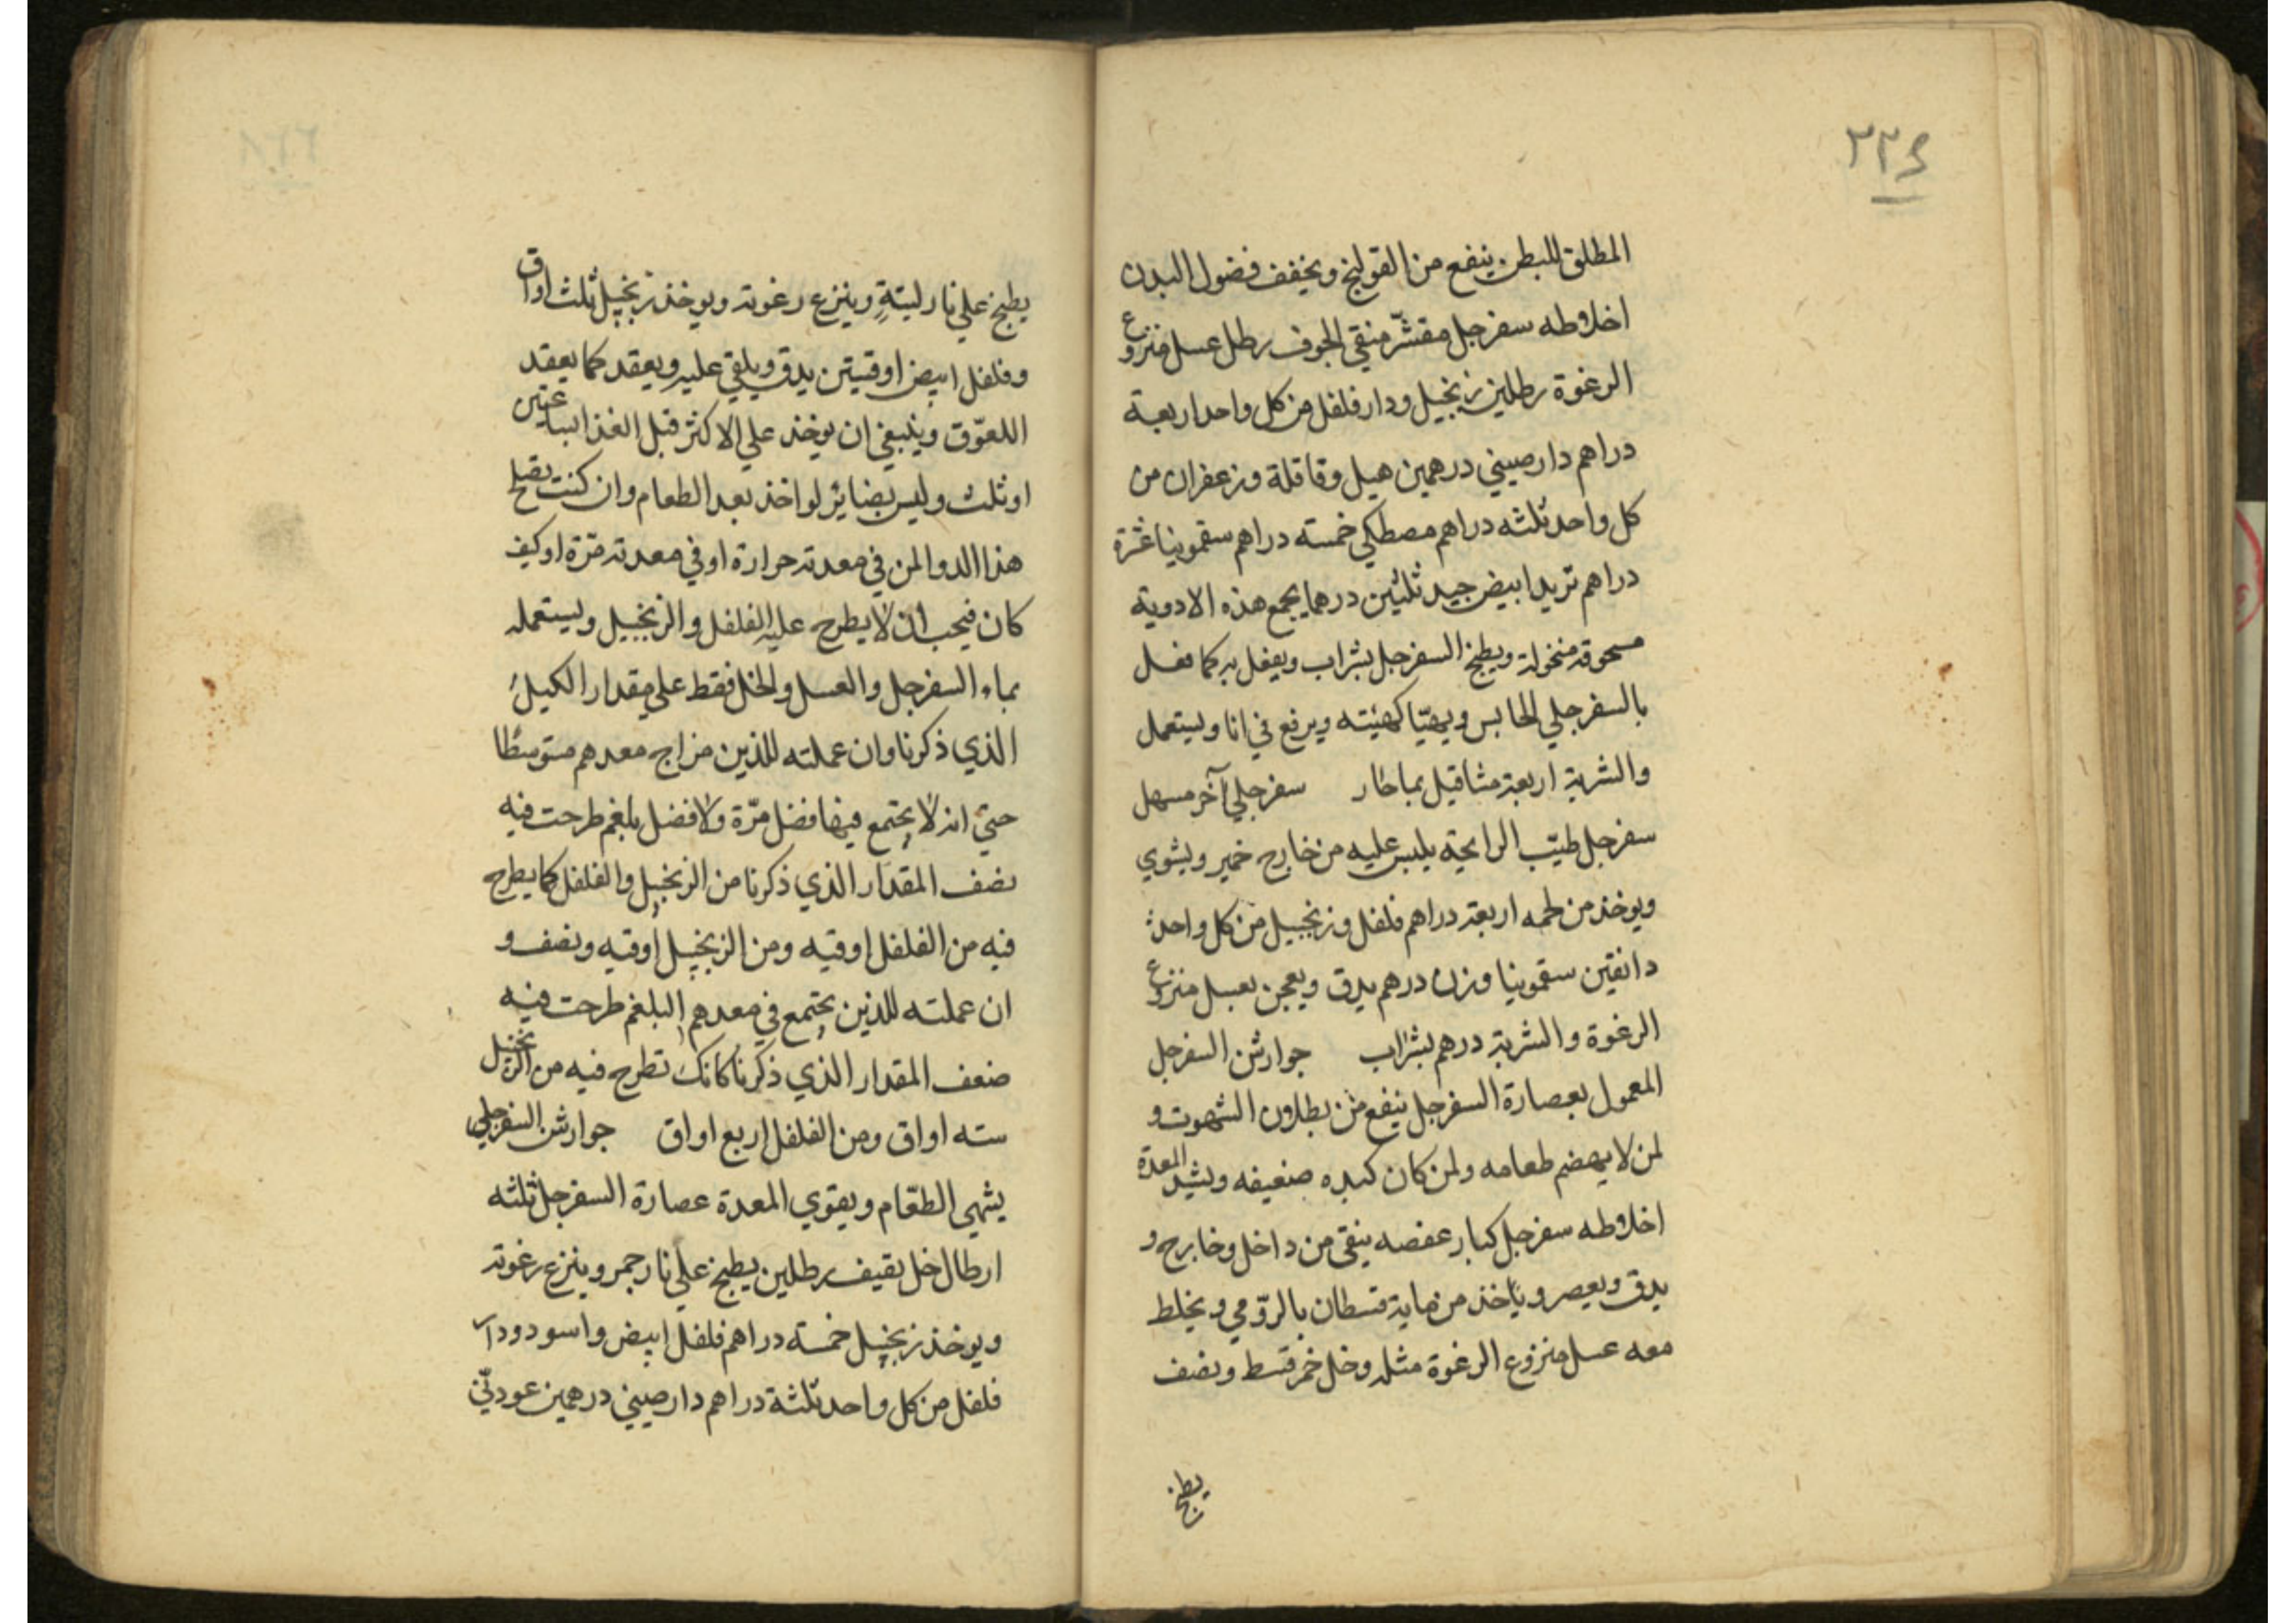 ٢٢٤
المطلق للبطن ينفع من القولنج ويخفف فضول البدن
اخلاطه سفرجل مقشّر منقي الجوف رطل عسل منزوع
الرغوة رطلين زنجبيل ودارفلفل من كل واحد اربعة
دراهم دارصيني درهمين هيل وقاقلة وزعفران من
كل واحد ثلثه دراهم مصطكي خمسته دراهم سقمونيا عشرة
دراهم تربد ابيض جيد ثلثين درهما يجمع هذه الادوية
مسحوقة منخولة ويطبخ السفرجل بشراب ويفعل به كما فعل
بالسفرجلي الحابس ويهيّا كهيئته ويرفع في انا ويستعمل
والشربة اربعة مثاقيل بماحار سفرجلي آخر مسهل
سفرجل طيّب الرايحة يلبس عليه من خارج خمير ويشوي
ويوخذ من لحمه اربعة دراهم فلفل وزنجبيل من كل واحد
دانقين سقمونيا وزن درهم يدق ويعجن بعسل منزوع
الرغوة والشربة درهم بشراب جوارشن السفرجل
المعمول بعصارة السفرجل ينفع من بطلان الشهوت و
لمن لا يهضم طعامه ولمن كان كبده ضعيفه ويشد المعدة
اخلاطه سفرجل كبار عفصه ينقي من داخل وخارج و
يدق ويعصر وياخذ من مايه قسطان بالرّومي ويخلط
معه عسل منزوع الرغوة مثله وخل خمر قسط ونصف
يطبخ
يطبخ علي نار ليتةٍ وينزع رغوته ويوخذ زنجبيل ثلث اواق
وفلفل ابيض اوقيتين يدق ويلقي عليه ويعقد كما يعقد
اللعوّق وينبغي ان يوخذ علي الاكثر قبل الغذا بساعتين
اوثلث وليس بضاير لواخذ بعد الطعام وان كنت تصلح
هذا الدوا لمن في معدته حرارة او في معدته مرّة اوكيف
كان فيجب ان لا يطرح عليه الفلفل والزنجبيل ويستعمله
بماء السفرجل والعسل والخل فقط علي مقدار الكيل
الذي ذكرنا وان عملته للذين مزاج معدهم متوسطا
حتي انه لا يجتمع فيها فضل مرّة ولا فضل بلغم طرحت فيه
نصف المقدار الذي ذكرنا من الزنجبيل والفلفل كما يطرح
فيه من الفلفل اوقيه ومن الزنجبيل اوقيه ونصف و
ان عملته للذين يجتمع في معدهم البلغم طرحت فيه
ضعف المقدار الذي ذكرنا كانك تطرح فيه من الزنجبيل
سته اواق ومن الفلفل اربع اواق جوارشن السفرجلي
يشهي الطعّام ويقوي المعدة عصارة السفرجل ثلثه
ارطال خل ثقيف رطلين يطبخ علي نار جمر وينزع رغوته
ويوخذ زنجبيل خمسته دراهم فلفل ابيض واسود ودار
فلفل من كل واحد ثلثة دراهم دارصيني درهمين عود نيّ